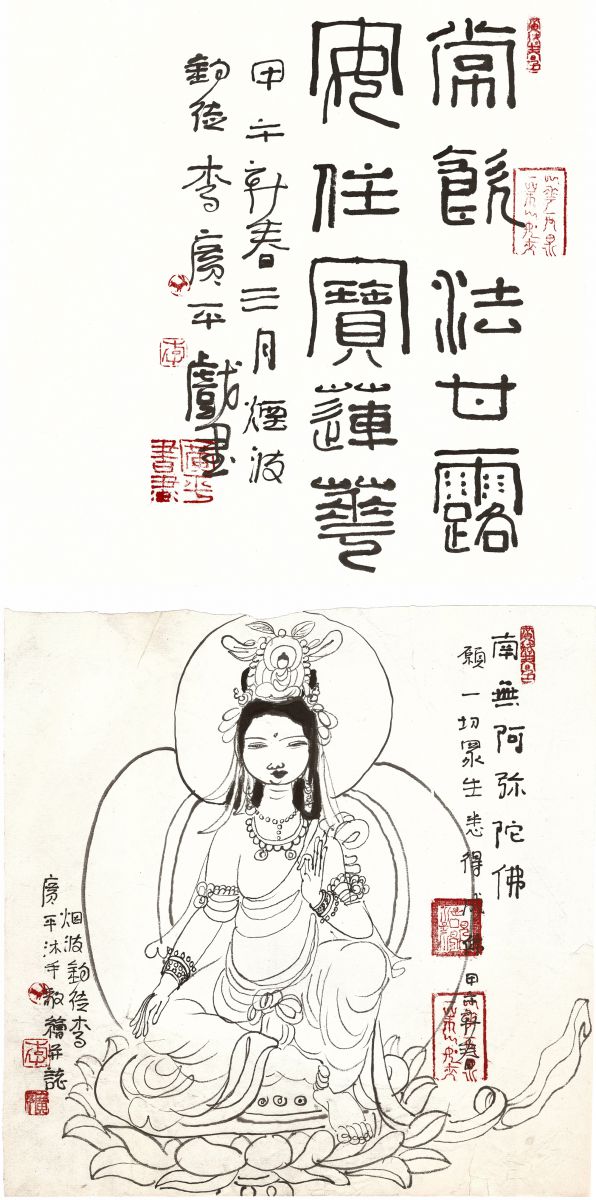 常飲法甘露
安住寶蓮華
甲午新春三月煙波
釣徒李廣平戲畫
廣平書畫
南無阿弥陀佛
願一切眾生悉得成 甲午新春
烟波釣徒李
廣平沐手敬繪并誌